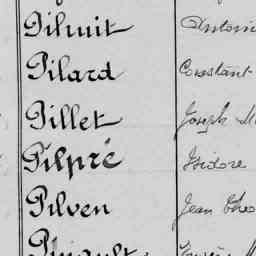 Pihuit Antoin
Pilard Constant
Pillet Joseph M
Pilpré Isidore
Pilven Jean